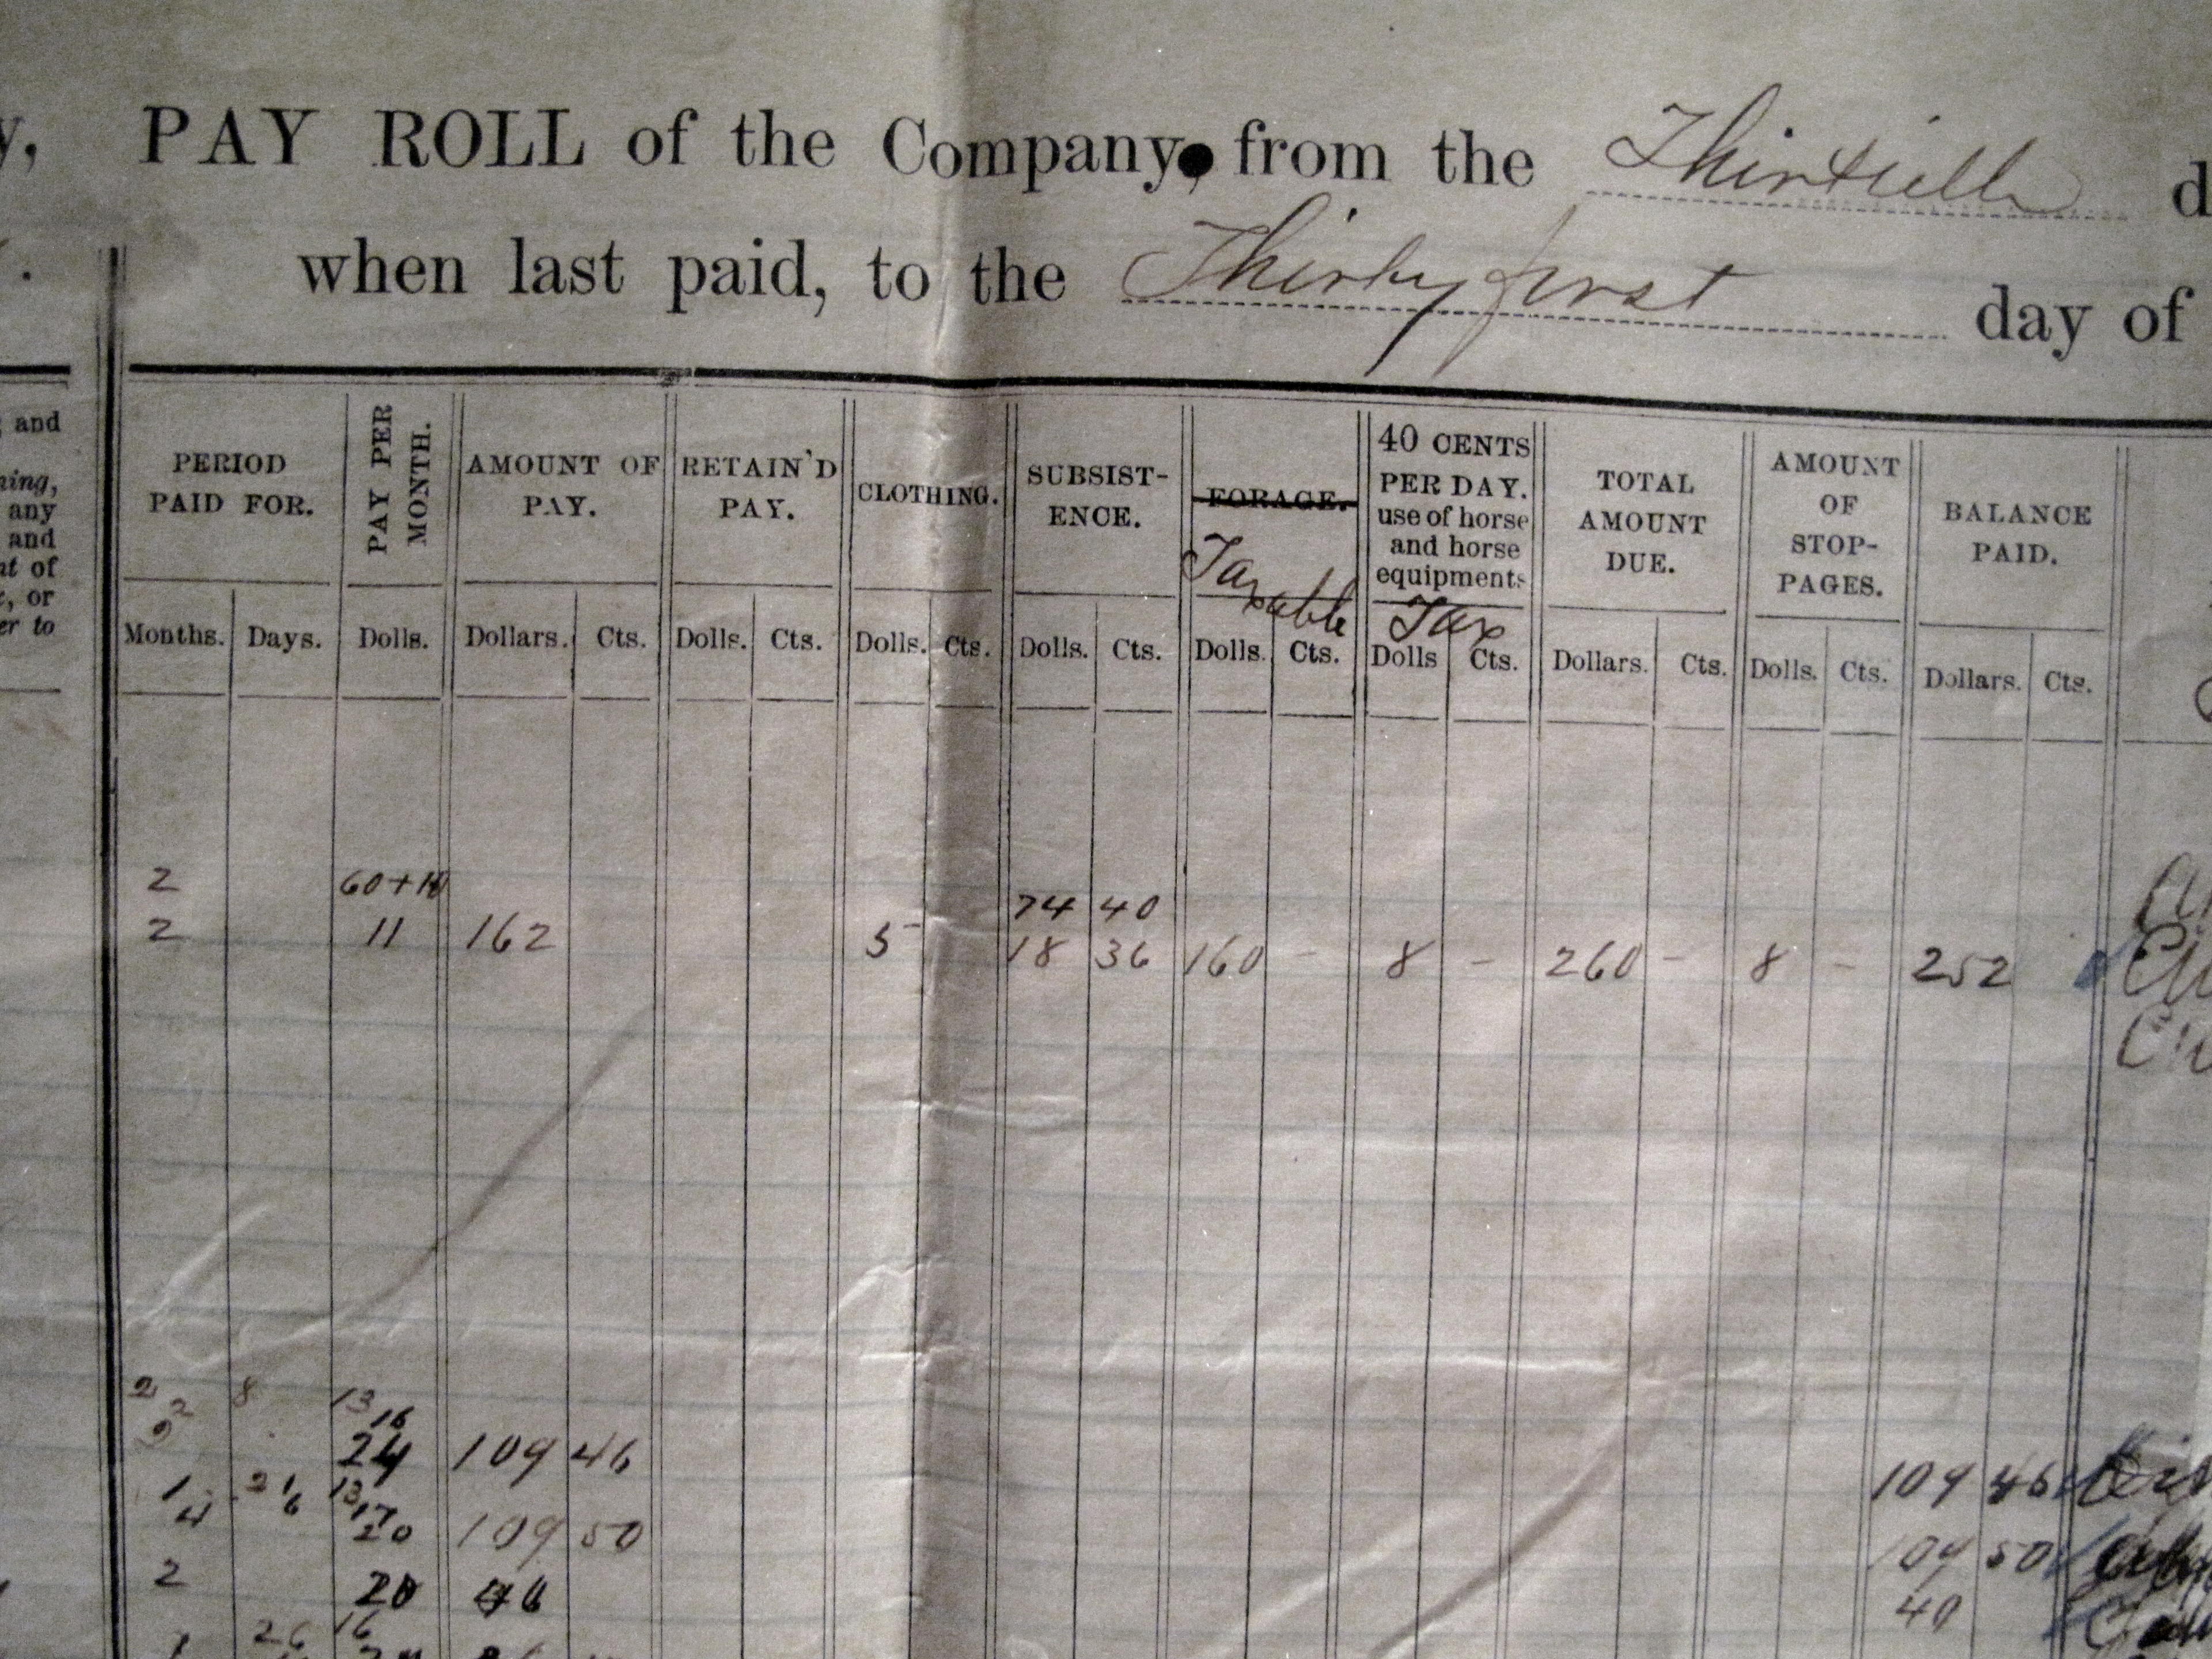 y, PAY ROLL of the Company, from the Thirtieth d
when last paid, to the Thirty first day of
and
ning,
any
and
nt of
, or
er to
PERIOD PAID FOR.
PAY PER MONTH.
AMOUNT OF PAY.
RETAIN'D PAY.
CLOTHING.
SUBSIST-
ENCE.
FORAGE.
Taxable
40 CENTS
PER DAY.
use of horse
and horse
equipments
Tax
TOTAL AMOUNT DUE.
AMOUNT OF STOP-
PAGES.
BALANCE PAID.
Months. Days. Dolls. Dollars. Cts. Dolls. Cts. Dolls. Cts. Dolls. Cts. Dolls. Cts. Dolls Cts. Dollars. Cts. Dolls. Cts. Dollars. Cts.
2 60+10 74 40
2 11 162 5 18 36 160 - 8 - 260 - 8 - 252
2 8 13
2 16
24 109 46 109 46
1 21 13
4 6 17
20 109 50 109 50
2 20 40
1 26 16